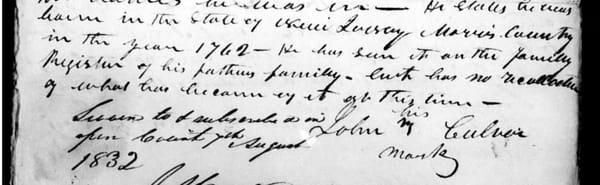 He States he was
born in the State of New Jersey Morris County
in the year 1762 - He has seen it on the family
Register of his fathers family - but has no recollection
of what has became of it at this time -
Sworn to & subscribed in
open Court 7th August
1832
John his Culver
mark